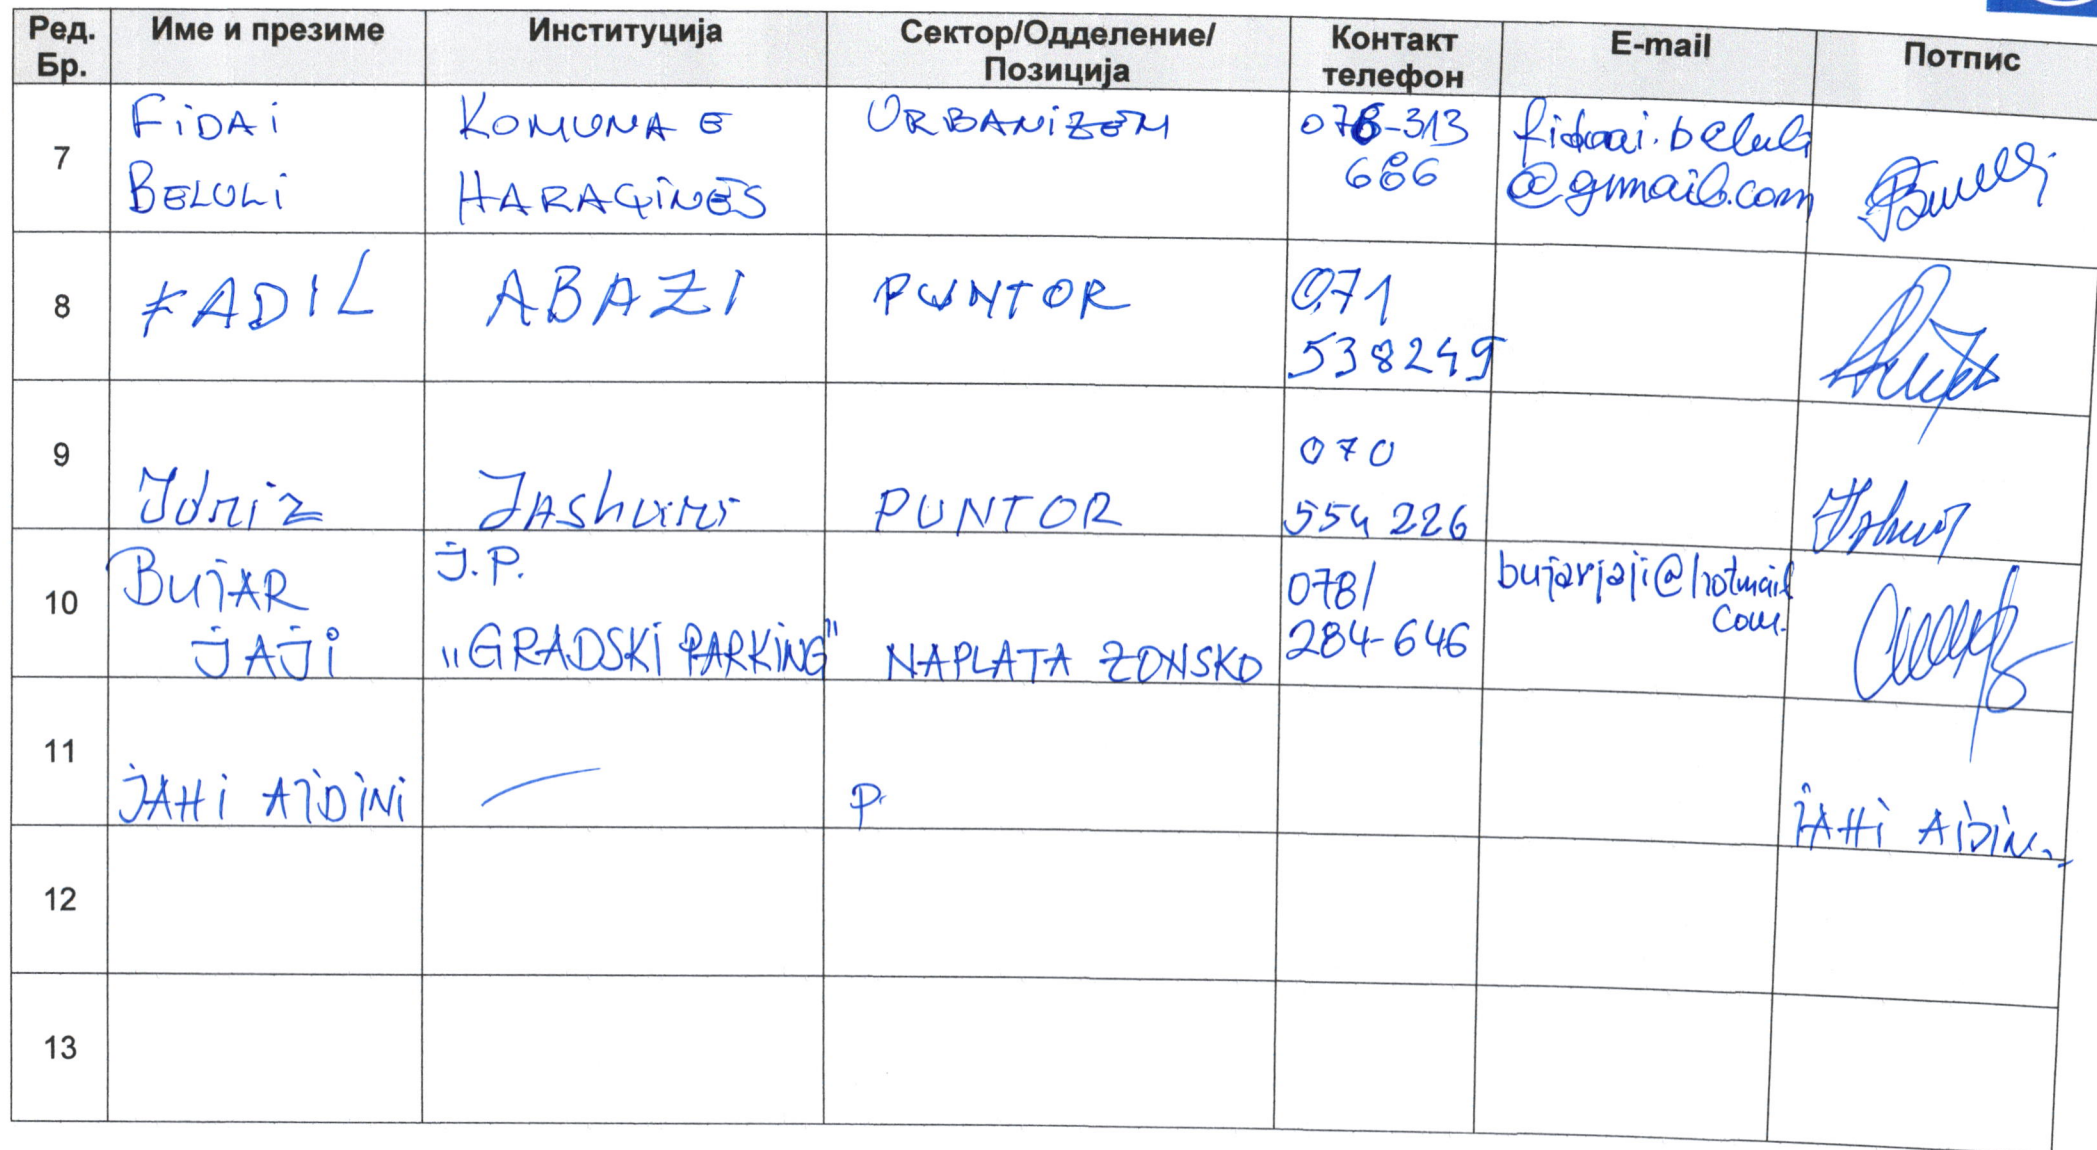 Ред. Бр. Име и презиме Институција Сектор/Одделение/ Позиција Контакт телефон E-mail Потпис
7 FIDAI BELULI KOMUNA E HARAÇINËS URBANIZEM 076-313 686 fidaai.beluli @gmail.com
8 FADIL ABAZI PUNTOR 071 538249
9 Idriz Jashari PUNTOR 070 554 226
10 BUJAR JAJI J.P. „GRADSKI PARKING" NAPLATA ZONSKO 078/ 284-646 bujarjaji@hotmail com.
11 JAHI AJDINI P. JAHI AIDINI
12
13